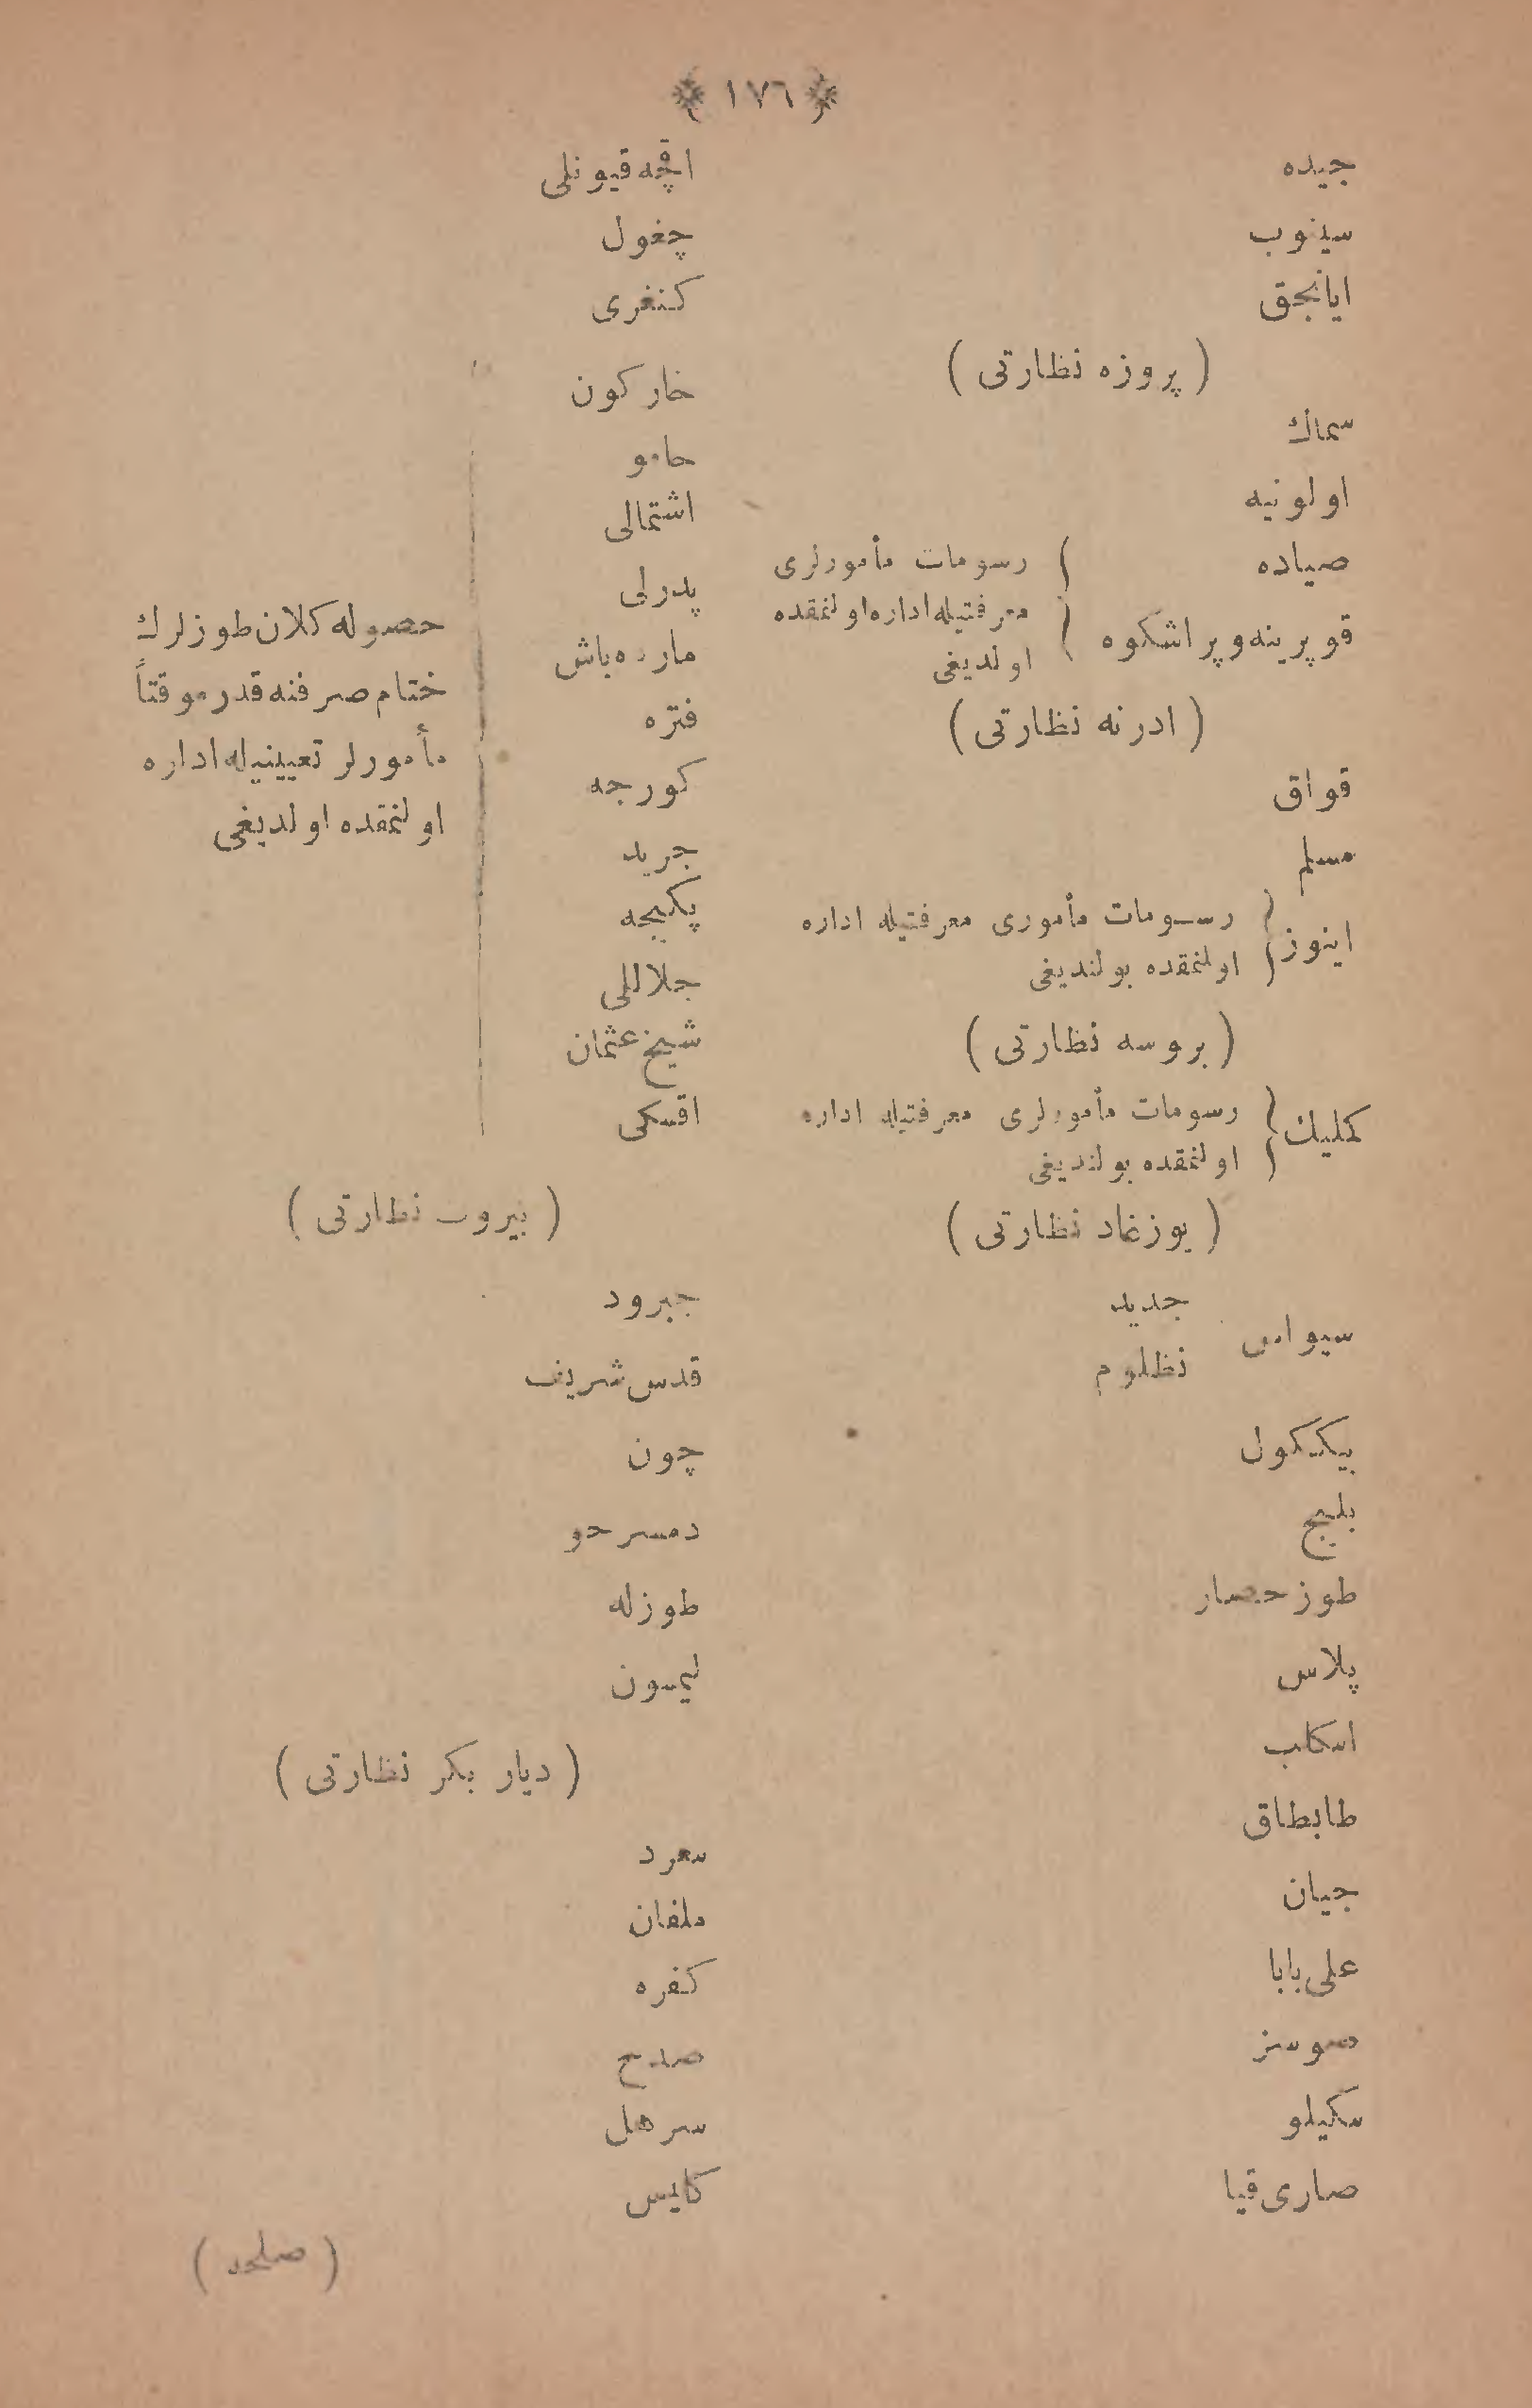 ﴿ ١٧٦ ﴾
جيده
سينوب
ايانجق
( پروزه نظارتى )
سماك
اولونيه
صياده
قوپرينه و پراشكوه
رسومات مأمورلرى
معرفتيله اداره اولنمقده
اولديغى
( ادرنه نظارتى )
قواق
مسلم
اينوز
رسومات مأمورى معرفتيله اداره
اولنمقده بولنديغى
( بروسه نظارتى )
كمليك
رسومات مأمورلرى معرفتيله اداره
اولنمقده بولنديغى
( يوزغاد نظارتى )
سيواس
جديد
نظلوم
بيككول
بليج
طوز حصار
پلاس
اسكلب
طابطاق
جيان
على بابا
صوسز
سكيلو
صارى قيا
اقچه قيونلى
چغول
كنغرى
خاركون
حامو
اشتمالى
پدرلى
مارده باش
فتره
كورجه
جريد
پكيجه
جلاللى
شيخ عثمان
اقسكى
حصوله كلان طوزلرك
ختام صرفنه قدر موقتاً
مأمورلر تعيينيله اداره
اولنمقده اولديغى
( بيروت نظارتى )
جبرود
قدس شريف
چون
دمسرحو
طوزله
ليمسون
( ديار بكر نظارتى )
سعرد
ملفان
كفره
صدح
سرهل
كايس
( صلحد )